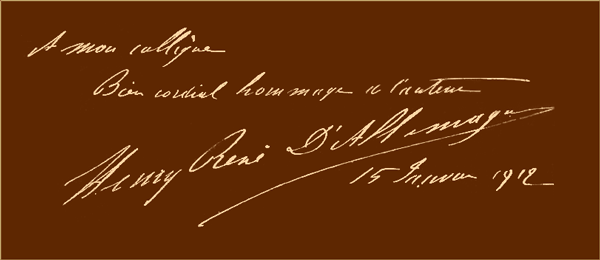 A mon collègue
Bien cordial hommage de l'auteur
Henry René D'Allemagne
15 Janvier 1912